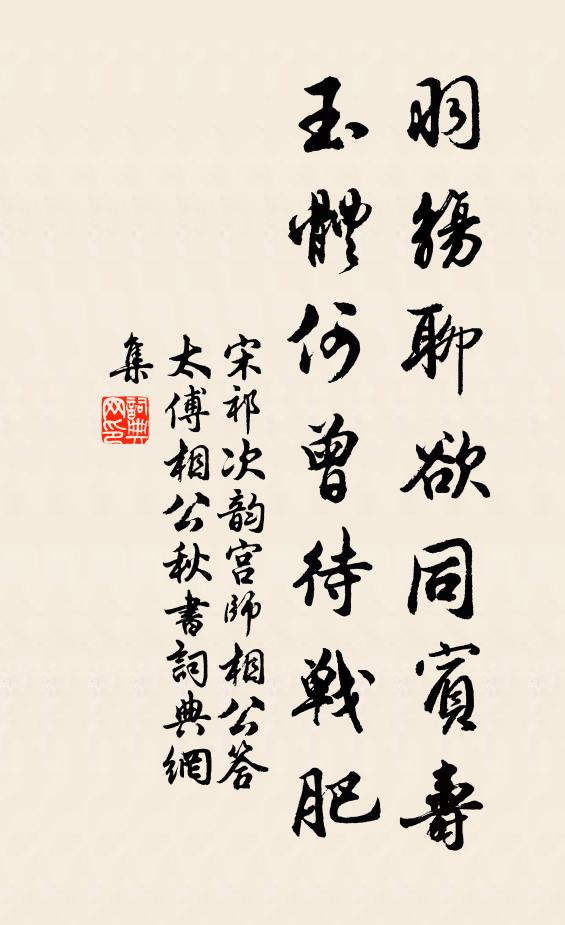 羽觴聊欲同賓壽
玉體何曾待戰肥
宋祁次韵宫師相公答
太傅相公秋書詞典網
集
詞典
网印